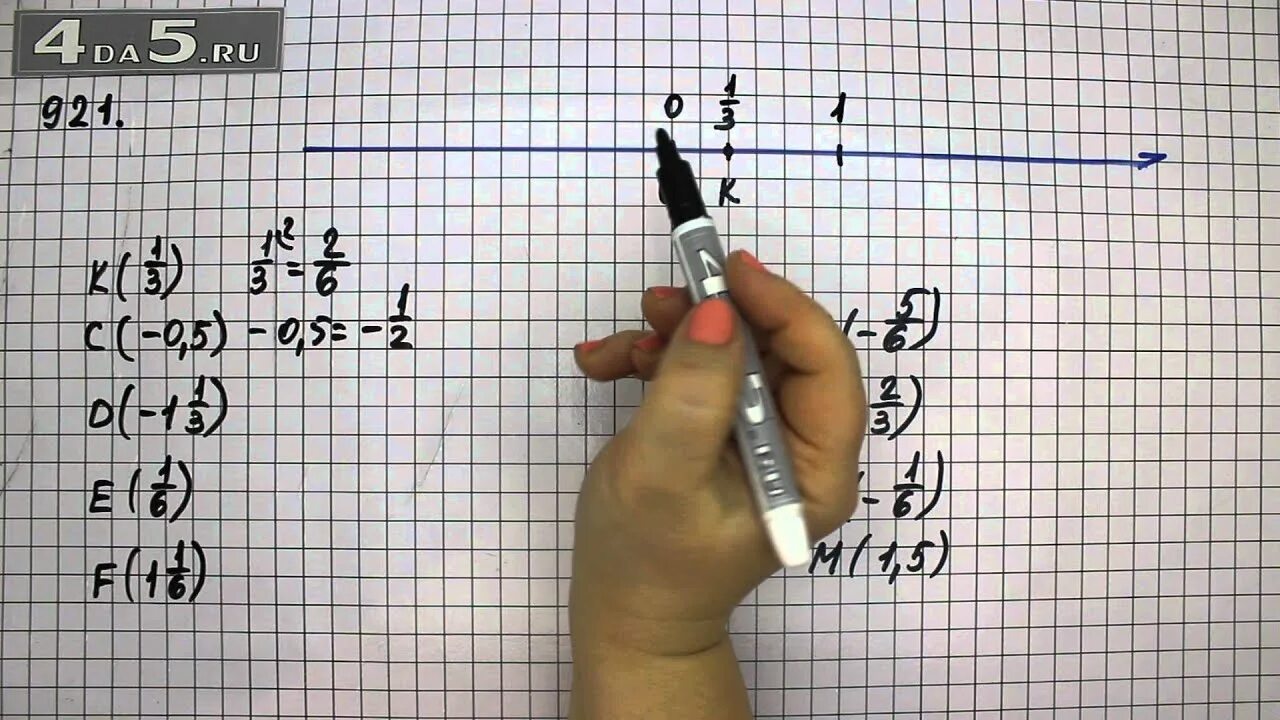 4DA5.RU
921.
0 1/3 1
K
K(1/3) 1/3 = 2/6
C(-0,5) -0,5 = -1/2
D(-1 1/3)
E(1/6)
F(1 1/6)
(-5/6)
2/3)
(-1/6)
M(1,5)